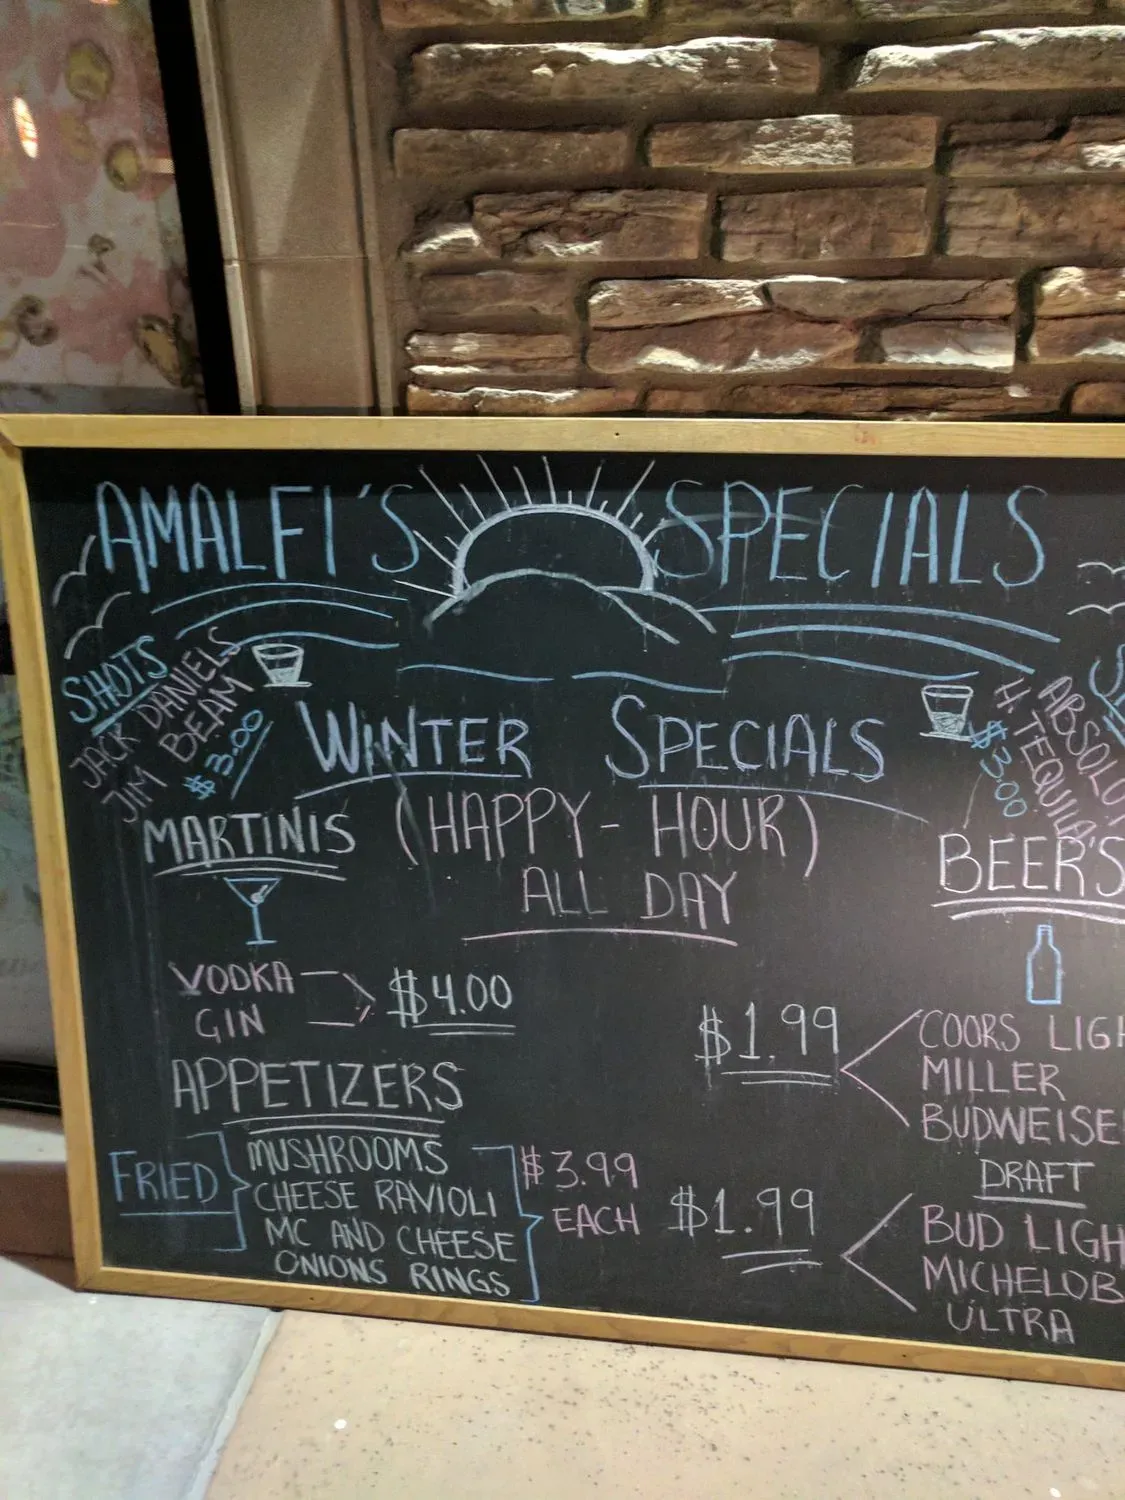 AMALFI'S SPECIALS
SHOTS
JACK DANIELS
JIM BEAM
$3.00
WINTER SPECIALS
(HAPPY - HOUR)
ALL DAY
ABSOLUT
H. TEQUILA
$3.00
MARTINIS
VODKA
GIN
$4.00
APPETIZERS
FRIED
MUSHROOMS
CHEESE RAVIOLI
MC AND CHEESE
ONIONS RINGS
$3.99
EACH
BEER'S
$1.99
COORS LIGH
MILLER
BUDWEISE
DRAFT
$1.99
BUD LIGH
MICHELOB
ULTRA